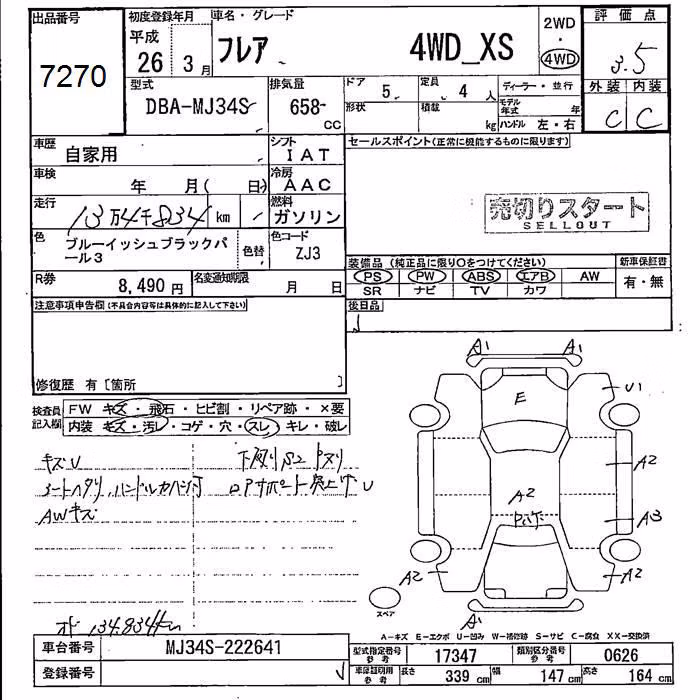 出品番号
7270
初度登録年月
平成
26 3月
車名・グレード
フレア 4WD_XS
2WD
・
4WD
評価点
3.5
外装 内装
C C
型式
DBA-MJ34S
排気量
658 CC
ドア 5 定員 4 人
形状 積載 kg
ディーラー・並行
モデル年式 年
ハンドル 左・右
車歴 自家用
シフト IAT
車検 年 月( 日)
冷房 AAC
走行 13万4千834 km
燃料 ガソリン
色 ブルーイッシュブラックパール3
色替
色コード ZJ3
R券 8,490円
名変通知期限 月 日
セールスポイント(正常に機能するものに限ります)
売切りスタート
SELLOUT
装備品(純正品に限り○をつけてください)
PS PW ABS エアB AW
SR ナビ TV カワ
新車保証書
有・無
後日品
注意事項申告欄(不具合内容等は具体的に記入して下さい)
修復歴 有〔箇所 〕
検査員記入欄
FW キズ・飛石・ヒビ割・リペア跡・×要
内装 キズ・汚レ・コゲ・穴・スレ・キレ・破レ
キズU
シートヘタリ ハンドルカバー付
AWキズ
下廻りS2 Pヌリ
ロアサポート突上ゲU
メーター 134.834km
A1 A1
E
U1
A2
A2
A3
A2
A2
A1
スペア
A-キズ E-エクボ U-凹み W-補修跡 S-サビ C-腐食 XX-交換済
車台番号 MJ34S-222641
登録番号
型式指定番号 参考 17347
類別区分番号 参考 0626
車庫証明用 参考 長さ 339 cm 幅 147 cm 高さ 164 cm